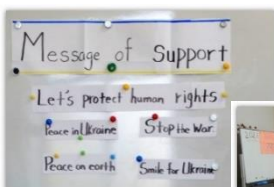 Message of Support
Let's protect human rights
Peace in Ukraine
Stop the War
Peace on earth
Smile for Ukraine